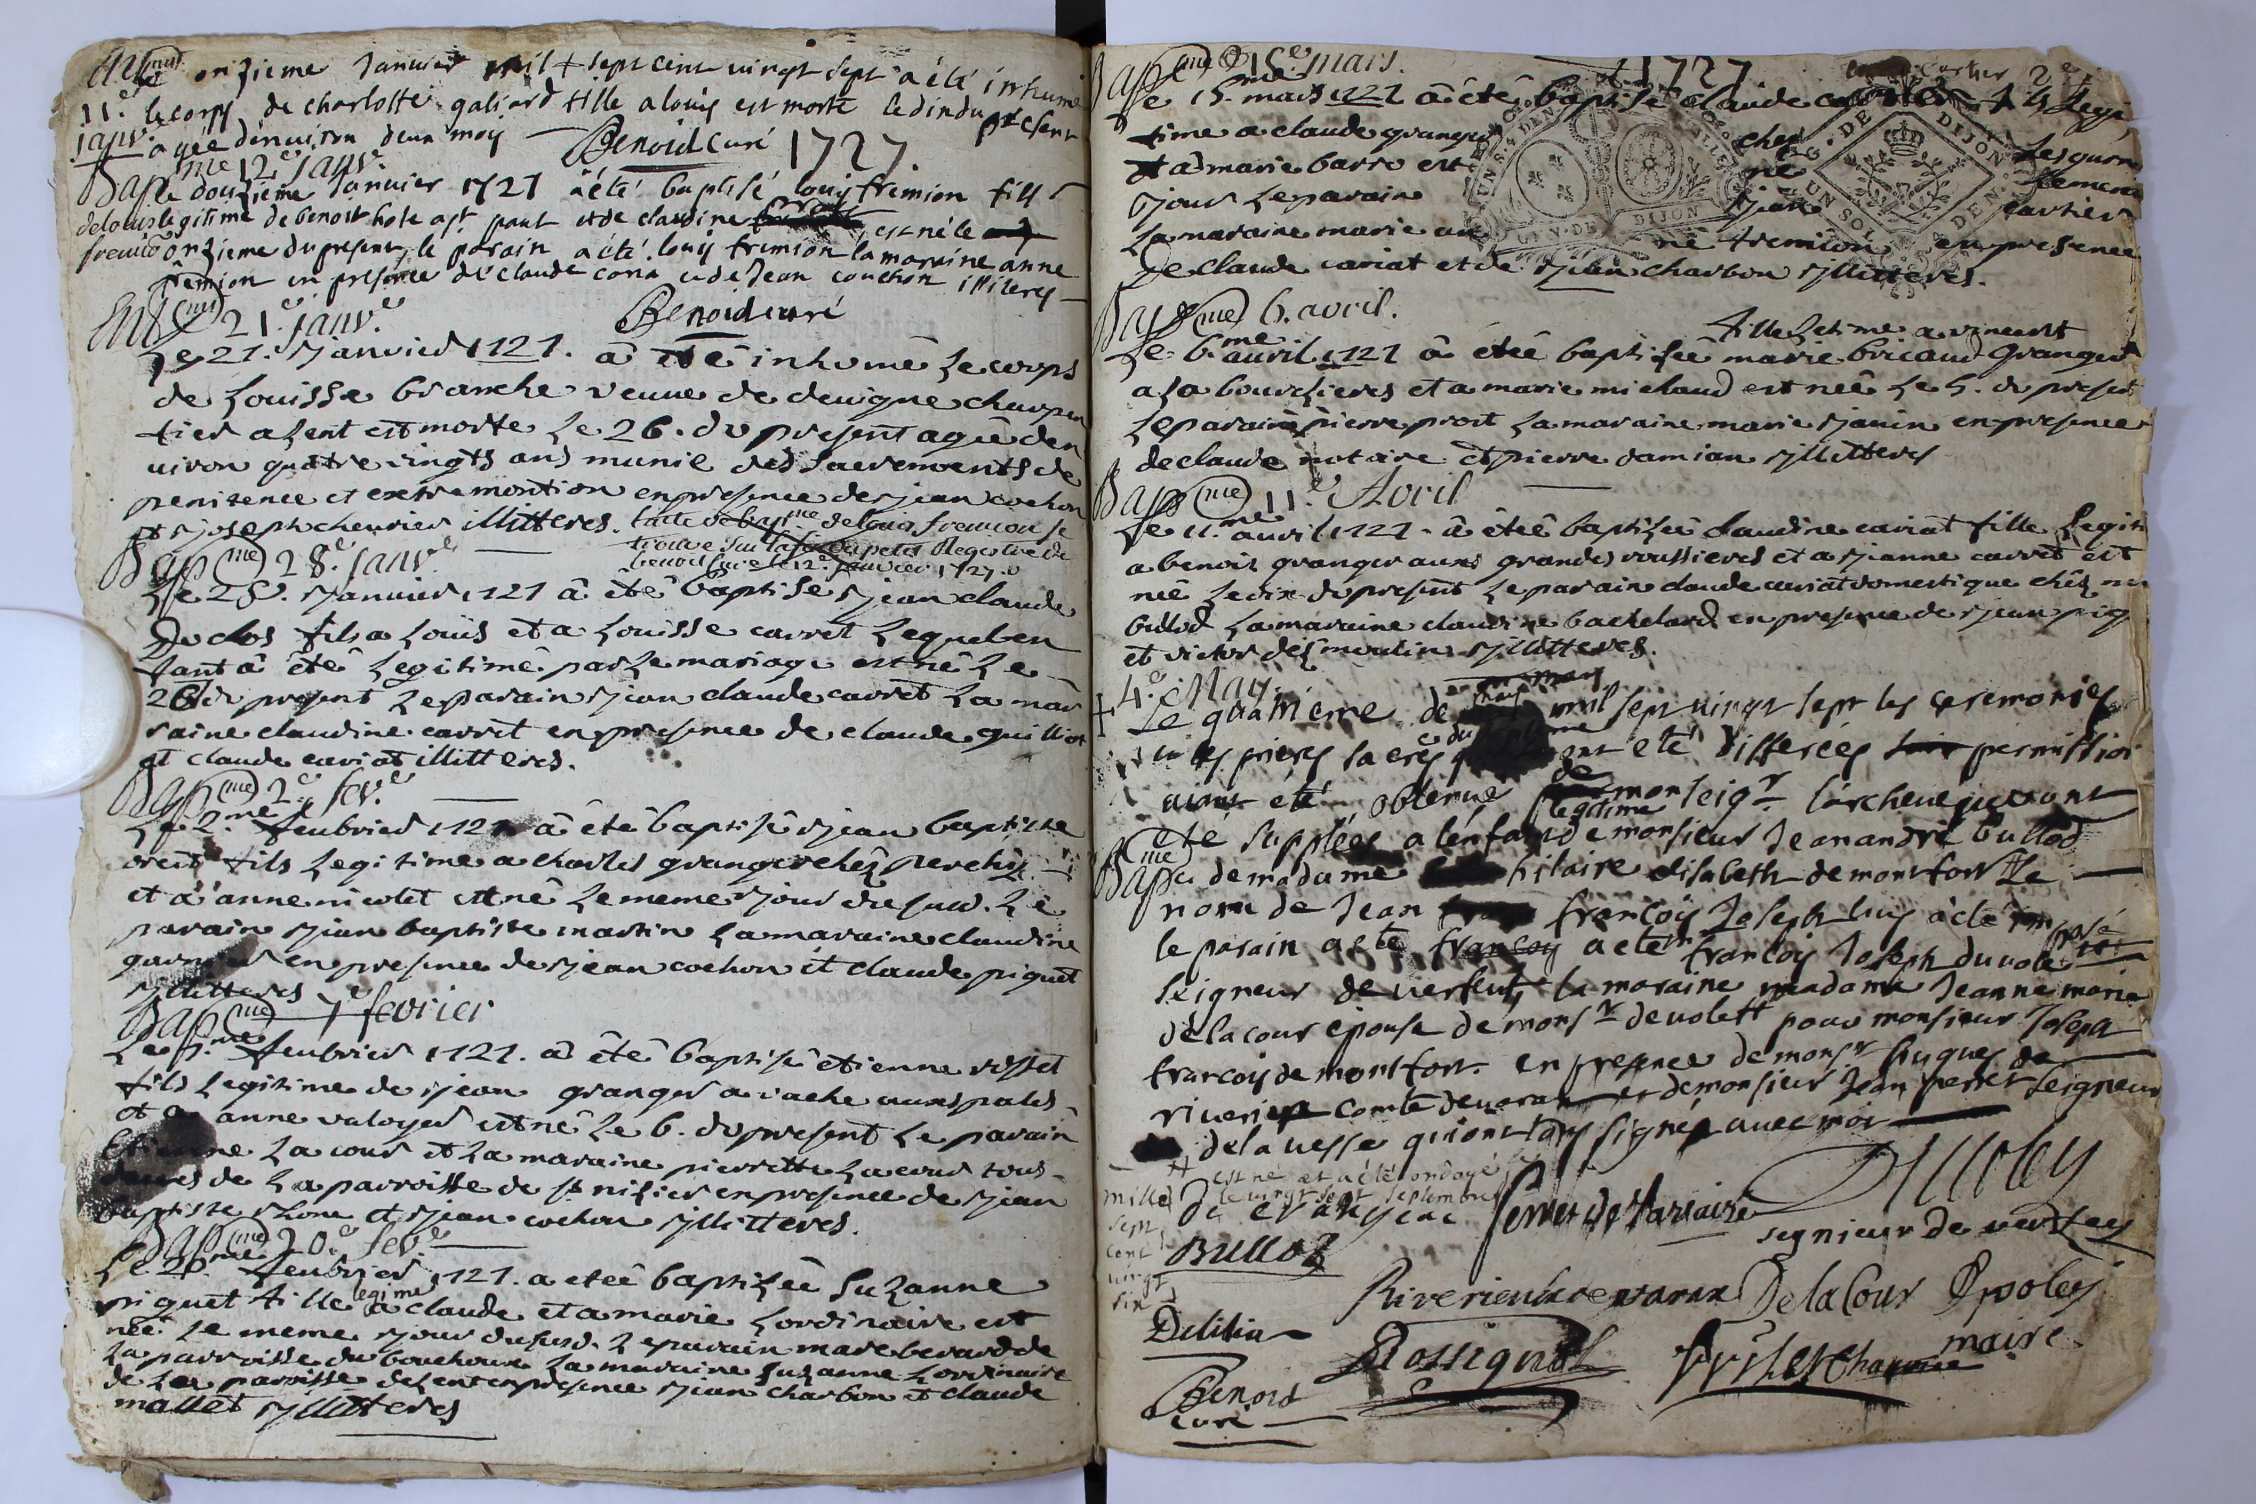 onzieme Janvier mil sept cent vingt sept a été inhumé
11.e le corps de charlotte galiard fille a louis est morte le dit du present
janv. agée denviron deux moy Benoid Curé 1727.
Bapme 12.e janv.e
le douzieme Janvier 1727 a été baptisé louy fremion fils
de louis legitime de benoist hote a st paul et de claudine est né le
fremion onzieme du present, le parain a été louy fremion la maraine anne
fremion en presence de claude cona et de Jean couchon illiteres
Benoid curé
Ent(me) 21.e janv.e
Le 21. Janvier 1727. a été inhumé Le corps
de Louisse branche veuve de devigne charpen
tier a Lent est morte Le 26. du present agée den
viron quatre vingts ans munie des sacrements de
penitence et extremontion en presence de sjean cochon
et sjoseph chevrier illitteres. lacte de bapme de louis fremion se
trouve sur la fin du petit Registre de
benoit curé le 12.e janvier 1727.
Bap(me) 28.e janv.e
Le 28. Janvier 1727 a été baptise sjean claude
Duclos fils a Louis et a Louisse carret Lequel en
fant a été Legitimé par Le mariage est né Le
26 du present Le parain sjean claude carret La mar
raine claudine carret en presence de claude guillot
et claude cariat illitteres.
Bap(me) 2.e fev.e
Le 2.me feubrier 1727 a été baptisé sjean baptiste
fils Legitime a charles granger chéz perchy
et a anne nicolet est né Le meme sjour du sud. Le
parain sjean baptiste martin La maraine claudine
en presence de sjean cochon et claude piguet
sjllitteres
Bap(me) 7e fevrier
Le 7.me feubrier 1727. a été baptisé etienne
fils Legitime de sjean granger a vache aux pales
et a anne valoyer est né Le 6. du present Le parain
Etienne La cour et La maraine pierrette La cour tous
deux de La parroisse de st nisier en presence de sjean
baptiste et sjean cochon sjllitteres.
Bap(me) 20.e fev.e
Le 20.me feubrier 1727. a eteé baptizée Suzanne
piguet fille legime a claude et a marie Lordinaire est
née Le meme sjour du sud. Le parain marc berard de
La parroisse du bouchoux La maraine suzanne Lordinaire
de La parroisse de Lent en presence sjean charbon et claude
mallet sjllitteres
Bap(me) 15.e mars. 1727 2e
Le 15.me mars 1727 a été baptisé claude fils Legi
time a claude granger chez Lesguen
et a marie barre est né Le meme
sjour Le parain sjean cartier
La maraine marie an né fremion en presence
de claude cariat et de sjean charbon sjllitteres.
UN S. 4 DEN. GEN. DE DIJON
G. DE DIJON UN SOL DEN.
Bap(me) 6. avril.
fille Letime a vincent
Le 6.me avril 1727 a été baptisée marie bricaud granger
a La bourchieres et a marie michaud est née Le 5. du present
Le parain pierre prost La maraine marie sjanin en presence
de claude notaire et pierre damian sjllitteres
Bap(me) 11.e Avril
Le 11.me avril 1727. a étée baptizée claudine cariat fille Legiti
a benoit granger aux grandes roussieres et a sjeanne carret est
née Le dix du present Le parain claude cariat domestique chéz mr
bullod La maraine claudine bachelard en presence de sjean
et victor desmoulin sjllitteres.
4.e May
Le quatrieme de may mil sept vingt sept les ceremonies
et les prieres sacrés du bapteme ont été differées permission
aiant été obtenue de monseigr l'archeveque ont
été supplées a l'enfant legitime de monsieur Jean andré bullod
Bap(me) et de madame hilaire elisabeth de montfort Le
nom de Jean françois Joseph luy a été imposé
le parain a été françoy a été françois Joseph duvolet
Seigneur de verfeuy la maraine madame Jeanne marie
de la cour épouse de monsr devolett pour monsieur Joseph
françois de montfort. en presence de monsr hugues de
riverieux comte de varax et de monsieur Jean perret Seigneur
de la vesse qui ont tous signés avec moi
est né et a été ondoyé le
mille le vingt sept septembre
sept
cent
vingt
six
BULLOZ
seynieur de verfey
Riverieulx de varax Delacour Dpoley
Delilia
Rossignol
maire
Benoid
curé